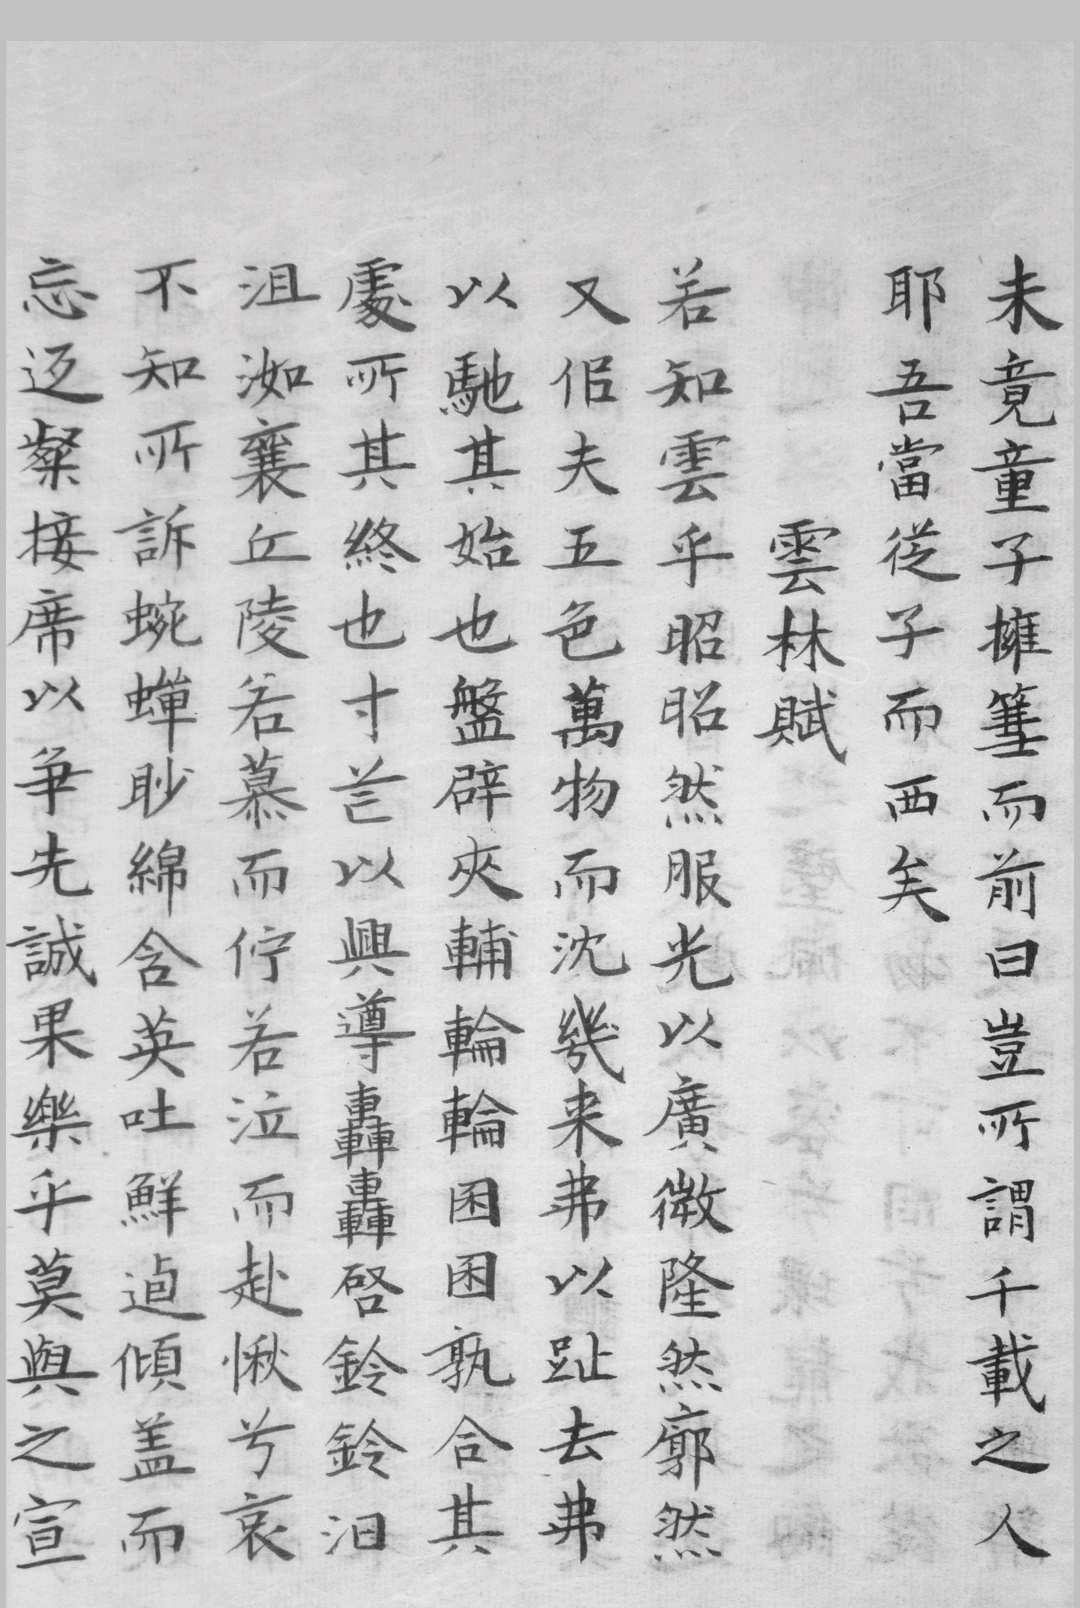 未竟童子擁篲而前曰豈所謂千載之人
耶吾當從子而西矣
雲林賦
若知雲乎昭昭然服光以廣微隆然廓然
又侣夫五色萬物而沈幾来弗以趾去弗
以馳其始也盤辟夾輔輪輪囷囷孰合其
處所其終也寸芒以興導轟轟啓鈴鈴汨
沮洳襄丘陵若慕而佇若泣而赴愀兮哀
不知所訴蜿蟬眇綿含英吐鮮逌傾盖而
忘返粲接席以爭先誠果樂乎莫與之宣